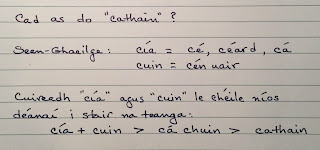 Cad as do "cathain" ?
Sean-Ghaeilge: cía = cé, céard, cá
cuin = cén uair
Cuireadh "cía" agus "cuin" le chéile níos
déanaí i stair na teanga:
cía + cuin > cá chuin > cathain